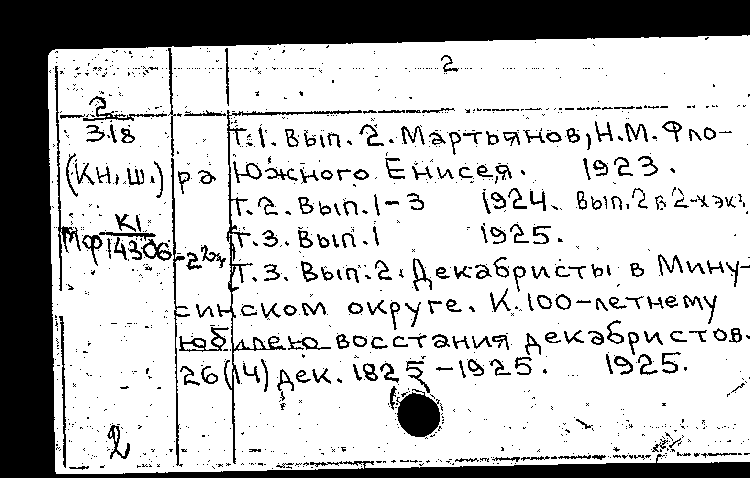 2
2
318
(Кн.ш.)
К1
Мф 14306
Т.1. Вып. 2. Мартьянов, Н.М. Фло-
ра Южного Енисея. 1923.
Т.2. Вып.1-3 1924. Вып.2 в 2-х экз.
Т.3. Вып.1 1925.
Т.3. Вып.2. Декабристы в Мину-
синском округе. К 100-летнему
юбилею восстания декабристов.
26(14) дек. 1825-1925. 1925.
2